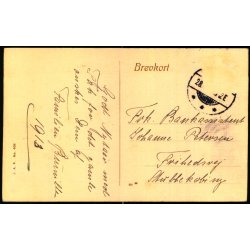 Brevkort
Godt Nytaar med
Tak for det gamle
ønsker Dem af
Familien
1918
Frk. Bankassistent
Johanne Petersen
Frihedsvej
Stubbekøbing